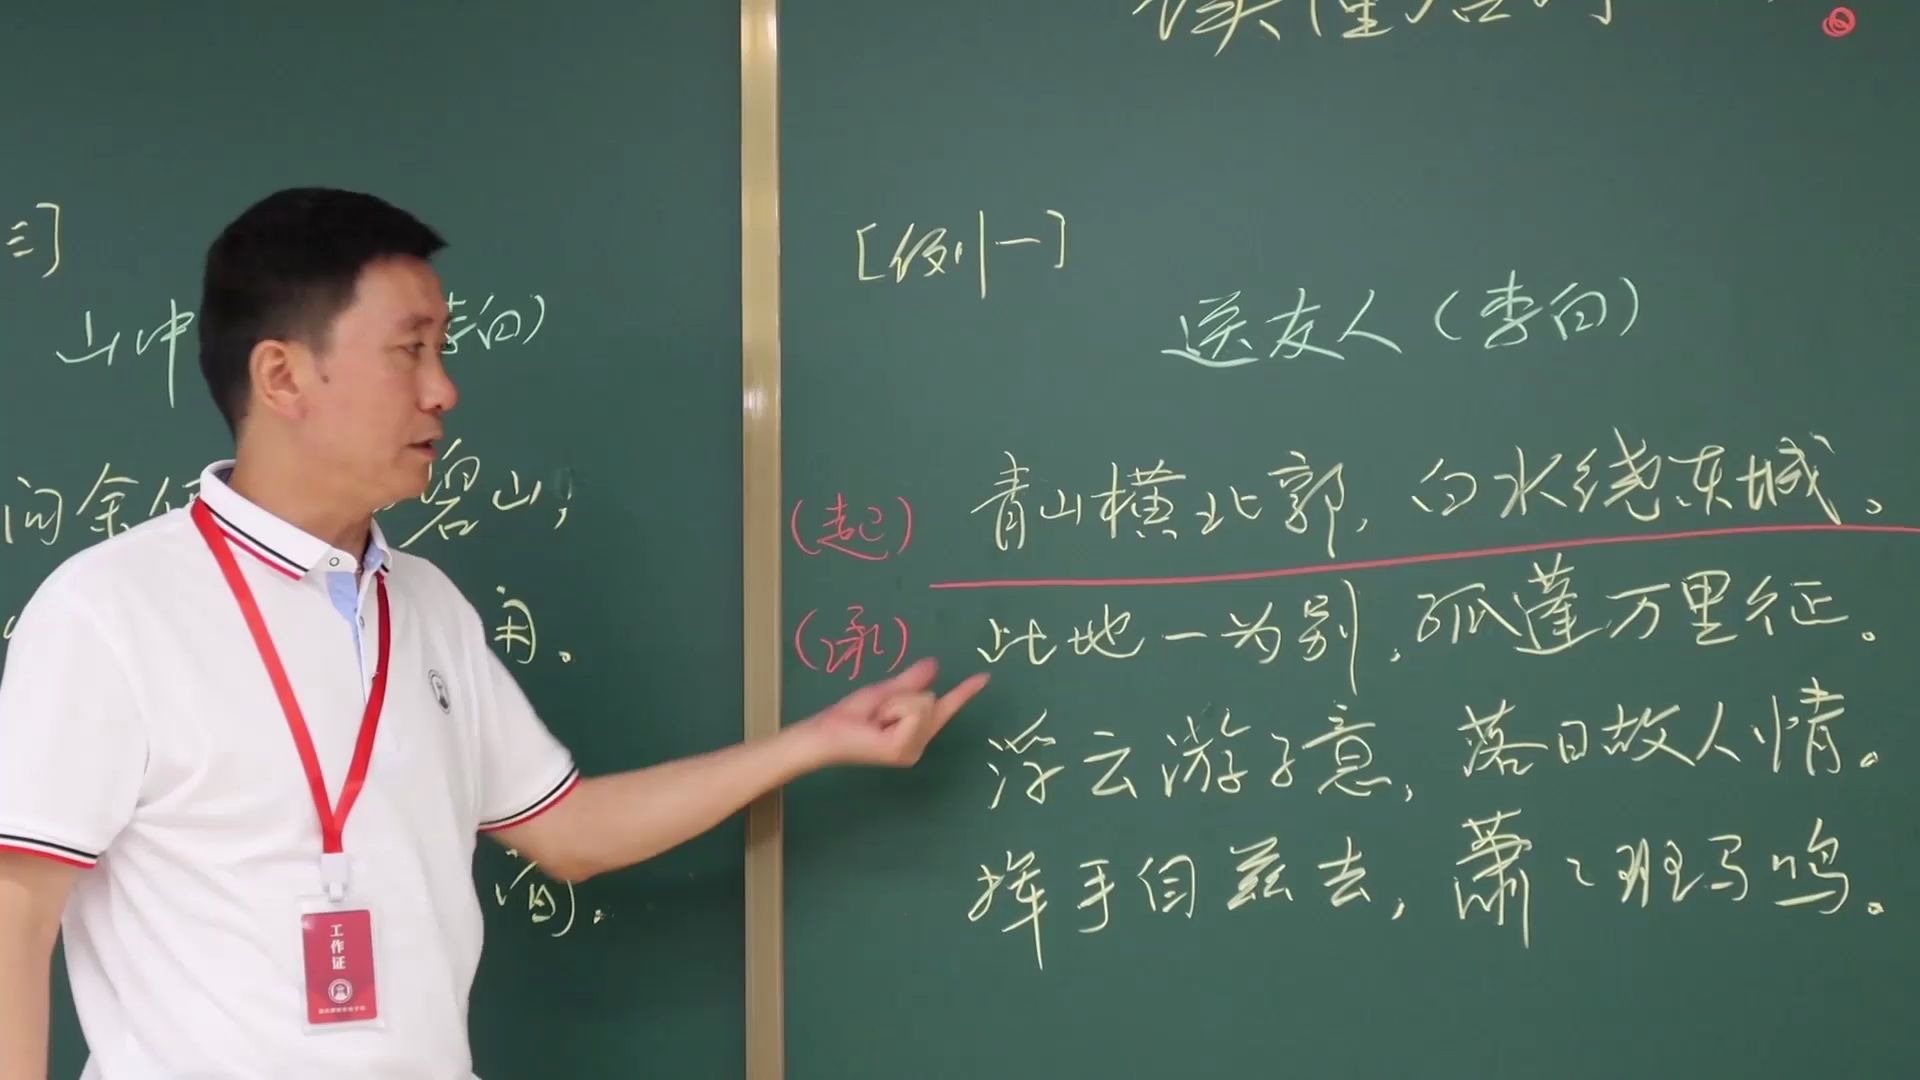 三]
山中 李白)
问余 碧山,
闲。
读懂古诗
[例一]
送友人(李白)
(起) 青山横北郭,白水绕东城。
(承) 此地一为别,孤蓬万里征。
浮云游子意,落日故人情。
挥手自兹去,萧々班马鸣。
工作证